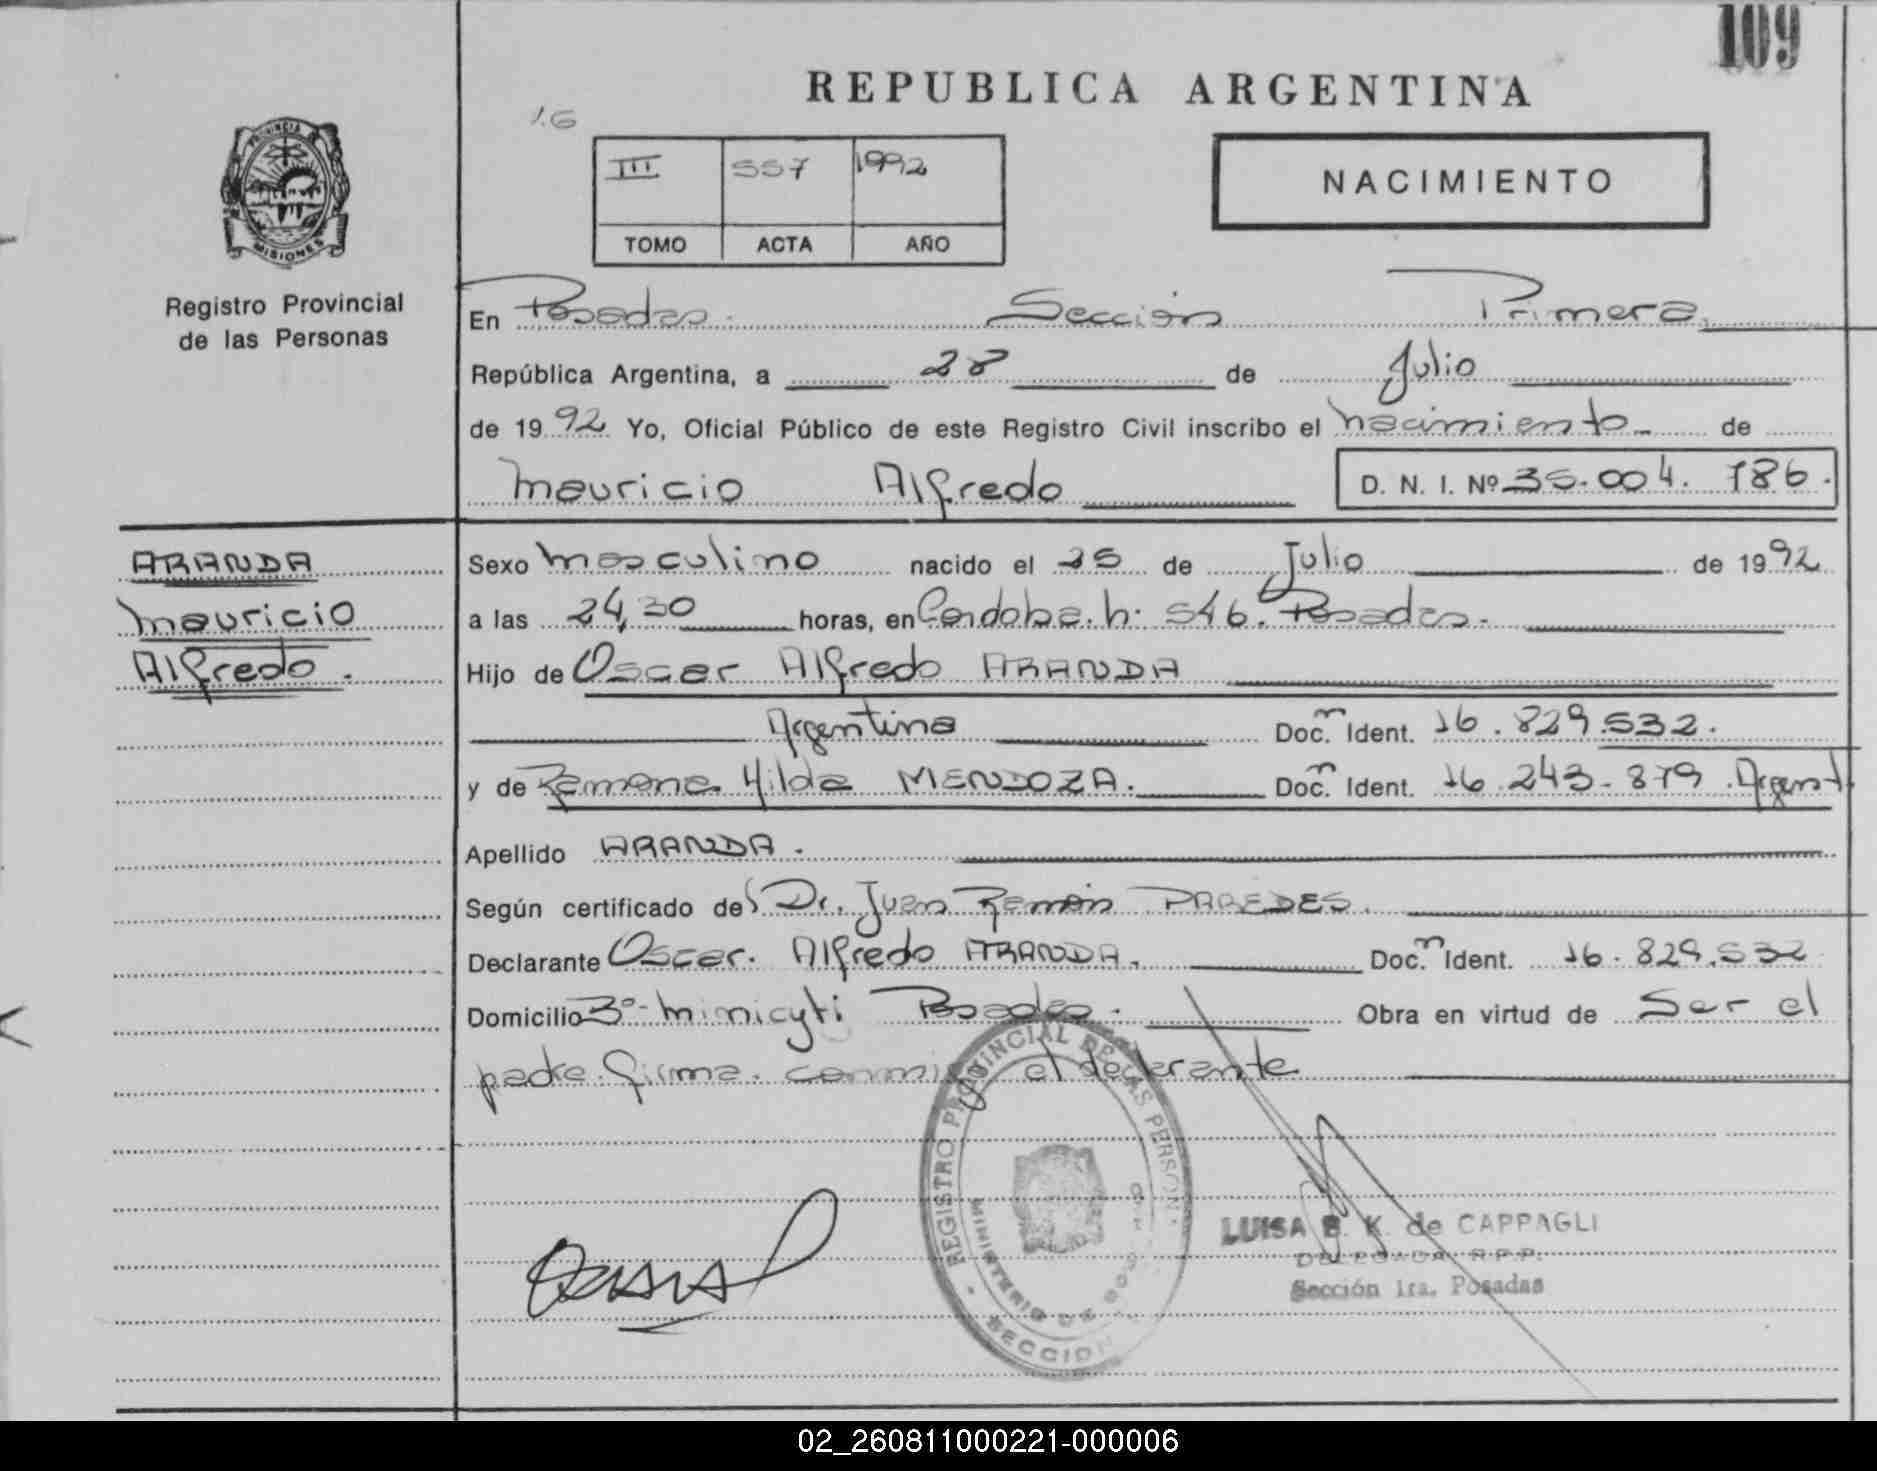 109
REPUBLICA ARGENTINA
16
III 557 1992
TOMO ACTA AÑO
NACIMIENTO
PROVINCIA DE MISIONES
Registro Provincial
de las Personas
En Posadas. Sección Primera
República Argentina, a 28 de Julio
de 1992 Yo, Oficial Público de este Registro Civil inscribo el nacimiento de
Mauricio Alfredo D. N. I. Nº 35.004.786.
ARANDA
Mauricio
Alfredo.
Sexo masculino nacido el 25 de Julio de 1992
a las 24,30 horas, en Cordoba. n: 546. Posadas.
Hijo de Oscar Alfredo ARANDA
Argentina Doc. n Ident. 16.829.532.
y de Ramona Hilda MENDOZA. Doc. n Ident. 16.243.879. Argent
Apellido ARANDA.
Según certificado del Dr. Juan Ramón PAREDES.
Declarante Oscar. Alfredo ARANDA. Doc. n Ident. 16.829.532
Domicilio Bº Miniciti Posadas. Obra en virtud de Ser el
padre. firma. conmigo el declarante
REGISTRO PROVINCIAL DE LAS PERSONAS
MINISTERIO DE GOB
SECCION
LUISA B. K. de CAPPAGLI
DELEGADA R.P.P.
Sección 1ra. Posadas
02_260811000221-000006